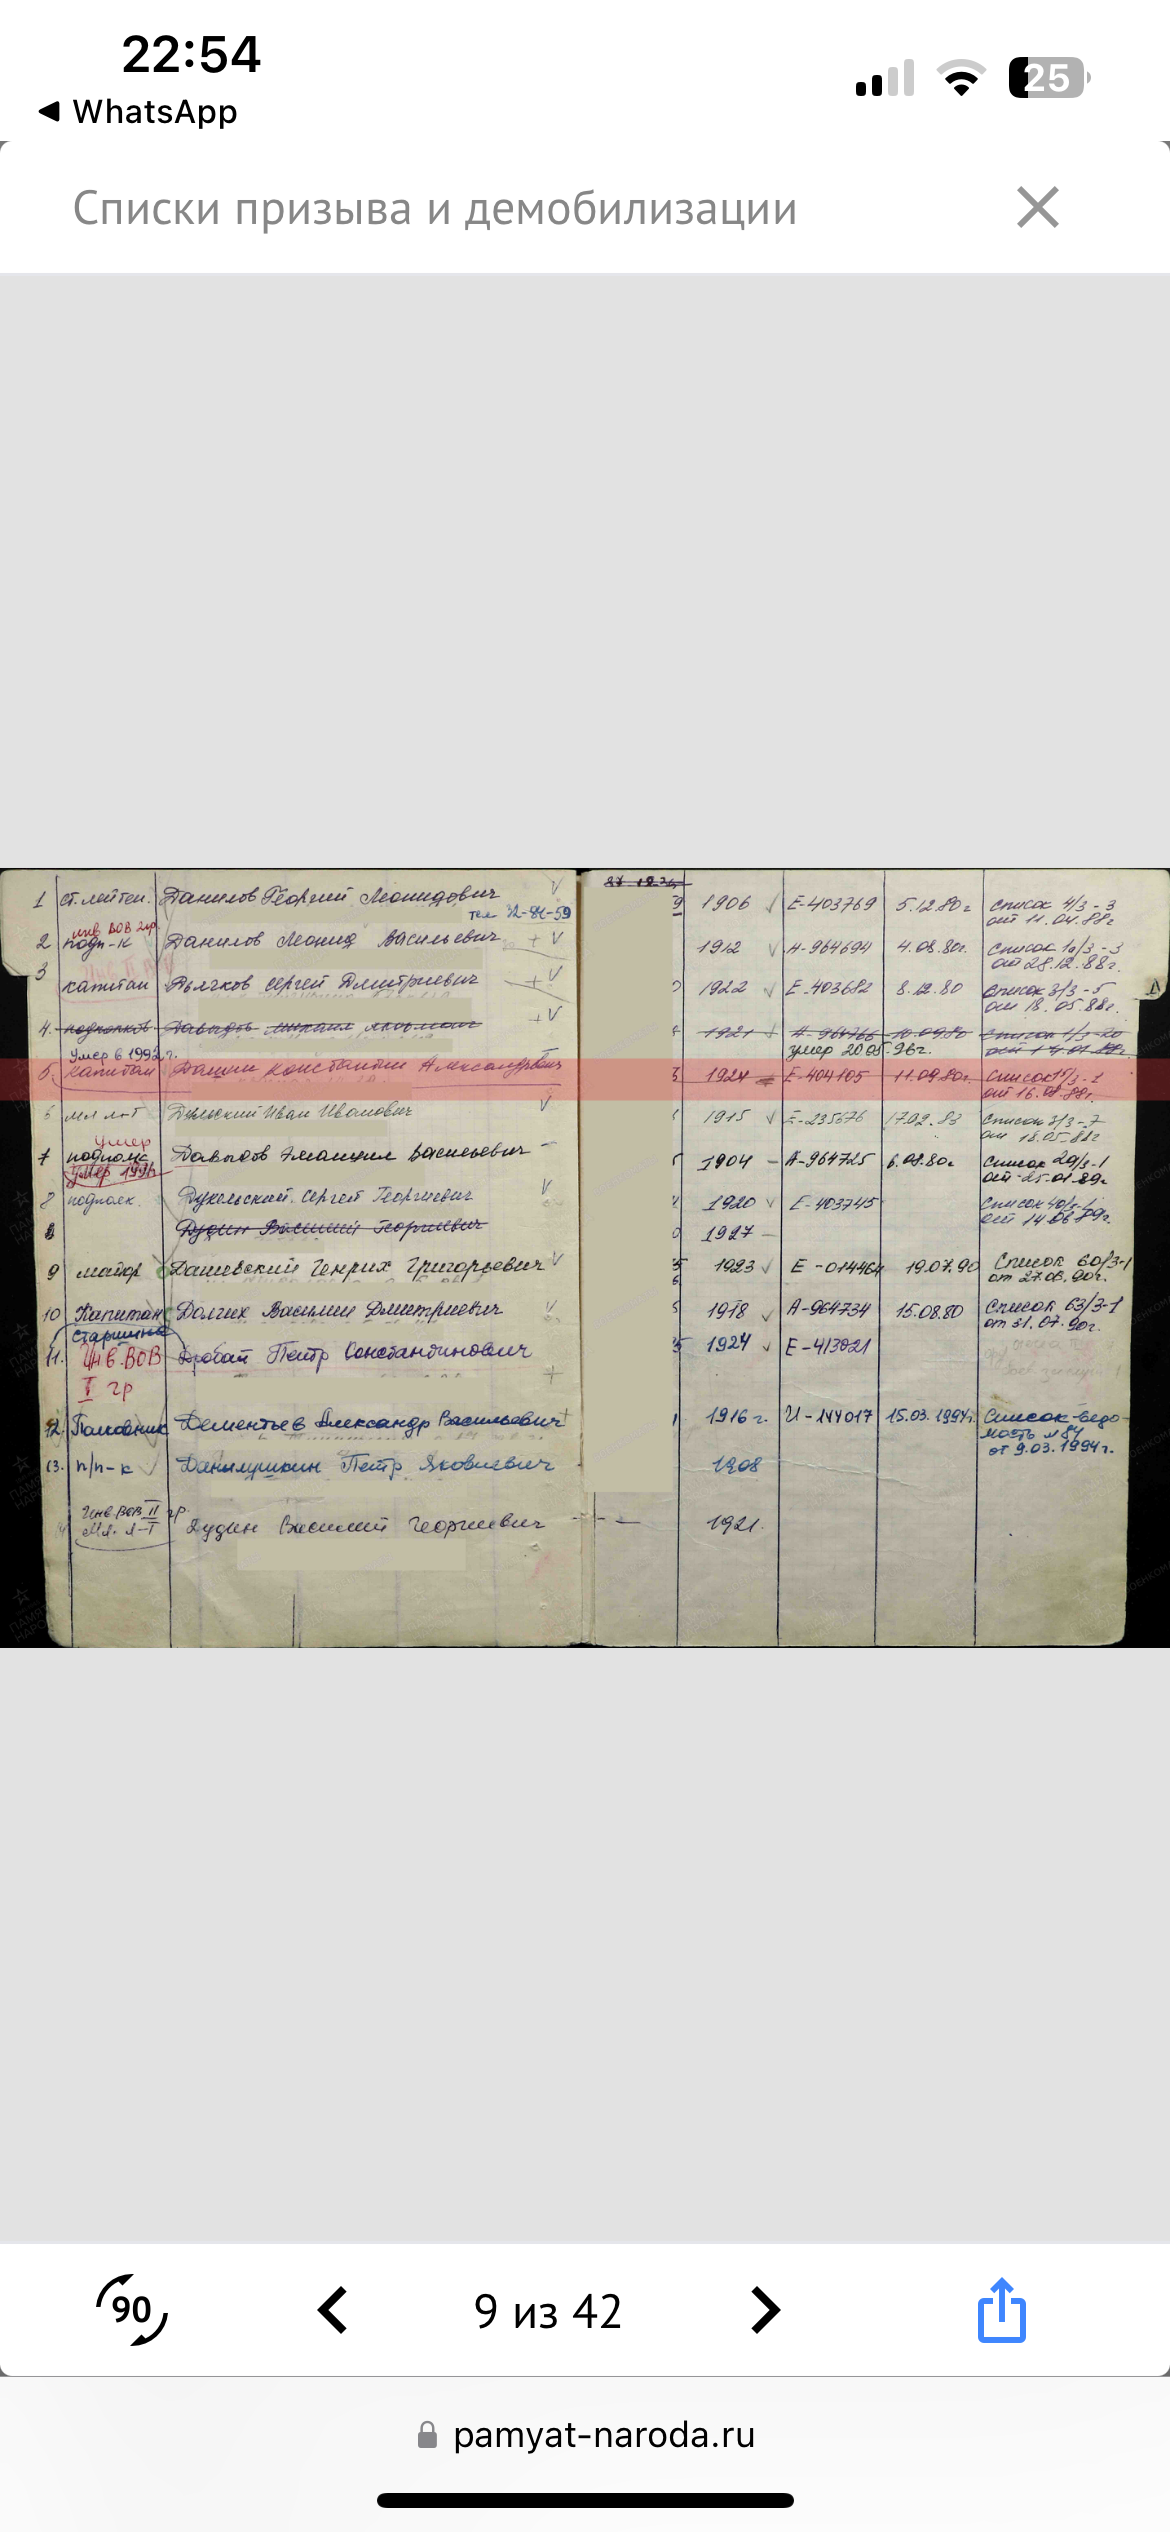 22:54
25
WhatsApp
Списки призыва и демобилизации
1 ст. лейтен. Данилов Георгий Леонидович 1906 Е-403769 5.12.80г Список 4/3-3
тел 32-81-59 от 11.04.88г
инв ВОВ 2гр.
2 подп-к Данилов Леонид Васильевич + 1912 А-964694 4.08.80г. Список 1а/3-3
от 28.12.88г.
3 капитан Дьячков Сергей Дмитриевич + 1922 Е-403682 8.12.80 Список 3/3-5
от 18.05.88г.
4. 1921 А-964766 10.09.80 Список 1/3-20
умер 20.05.96г.
Умер в 1992г.
5 капитан Константин Александрович 1924 Е-404105 11.09.80г. Список 15/3-1
от 16.08.88г.
6 мл л-т Дульский Иван Иванович 1915 Е-235676 17.02.83 Список 3/3-7
от 18.05.88г
умер
7 подполк Давыдов Василевич 1904 - А-964725 6.08.80г Список 29/3-1
умер 199 от 25.01.89г
8 подполк. Дукельский Сергей Георгиевич 1920 Е-403745 Список 40/3-1
от 14.06.89г.
Дудин Василий Георгиевич 1927 -
9 майор Дашевский Генрих Григорьевич 1923 Е-014464 19.07.90 Список 60/3-1
от 27.06.90г.
10 Капитан Долгих Василий Дмитриевич 1918 А-964734 15.08.80 Список 63/3-1
от 31.07.90г.
старшина
11. Инв. ВОВ Дробот Петр Константинович 1924 Е-413021
I гр
12. Полковник Дементьев Александр Васильевич 1916 г. И-144017 15.03.1994г. Список-ведо-
мость №84
от 9.03.1994г.
13. п/п-к Данилушкин Петр Яковлевич 1908
Инв ВОВ II гр.
мл. л-т Дудин Василий Георгиевич - - 1921.
90
9 из 42
pamyat-naroda.ru